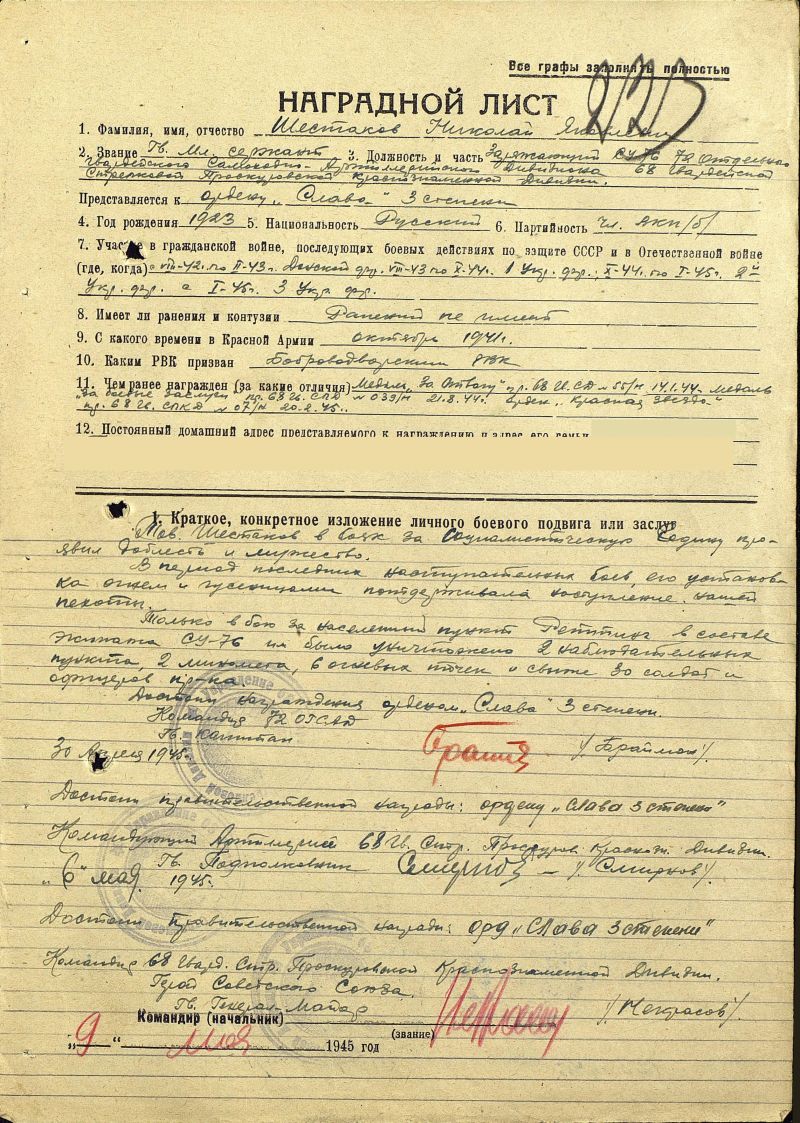 Все графы заполнять полностью
223
НАГРАДНОЙ ЛИСТ
1. Фамилия, имя, отчество Шестаков Николай
2. Звание Гв. Мл. сержант 3. Должность и часть Заряжающий СУ-76 72 Отдельного
Гвардейского Самоходно-Артиллерийского Дивизиона 68 Гвардейской
Стрелковой Проскуровской Краснознаменной Дивизии.
Представляется к ордену „Слава" 3 степени
4. Год рождения 1923 5. Национальность Русский 6. Партийность чл. ВКП/б/
7. Участие в гражданской войне, последующих боевых действиях по защите СССР и в Отечественной войне
(где, когда) с VIII-42г. по II-43г. Донской фр. VIII-43 по X-44г. 1 Укр. фр.; X-44г. по I-45г. 2й
Укр. фр. с I-45г. 3 Укр. фр.
8. Имеет ли ранения и контузии Ранений не имеет
9. С какого времени в Красной Армии октября 1941г.
10. Каким РВК призван Боброводворским РВК
11. Чем ранее награжден (за какие отличия) Медаль „За Отвагу" пр. 68 Гв. СД № 55/н 14.1.44г. медаль
„За боевые заслуги" пр. 68 Гв. СПКД № 039/н 21.8.44г. орден „Красная звезда"
пр. 68 Гв. СПКД № 07/н 20.2.45г.
12. Постоянный домашний адрес представляемого к награждению и адрес его семьи
I. Краткое, конкретное изложение личного боевого подвига или заслуг
Тов. Шестаков в боях за Социалистическую Родину про-
явил доблесть и мужество.
В период последних наступательных боев, его установ-
ка огнем и гусеницами поддерживала наступление нашей
пехоты.
Только в бою за населенный пункт в составе
экипажа СУ-76 им было уничтожено 2 наблюдательных
пункта, 2 миномета, 6 огневых точек и свыше 30 солдат и
офицеров пр-ка.
Достоин награждения орденом „Слава" 3 степени
Командир 72 ОГСАД
Гв. Капитан /Брайман/.
30 Апреля 1945г.
Достоин правительственной награды: ордену „Слава 3 степени"
Командующий Артиллерией 68 Гв. Стр. Проскуров. Краснозн. Дивизии.
Гв. Подполковник Смирнов – /Смирнов/.
„6" мая 1945г.
Достоин правительственной награды: орд. „Слава 3 степени"
Командир 68 Гвард. Стр. Проскуровской Краснознаменной Дивизии.
Герой Советского Союза.
Гв. Генерал-Майор /Некрасов/.
Командир (начальник)
(звание)
„9" мая 1945 год